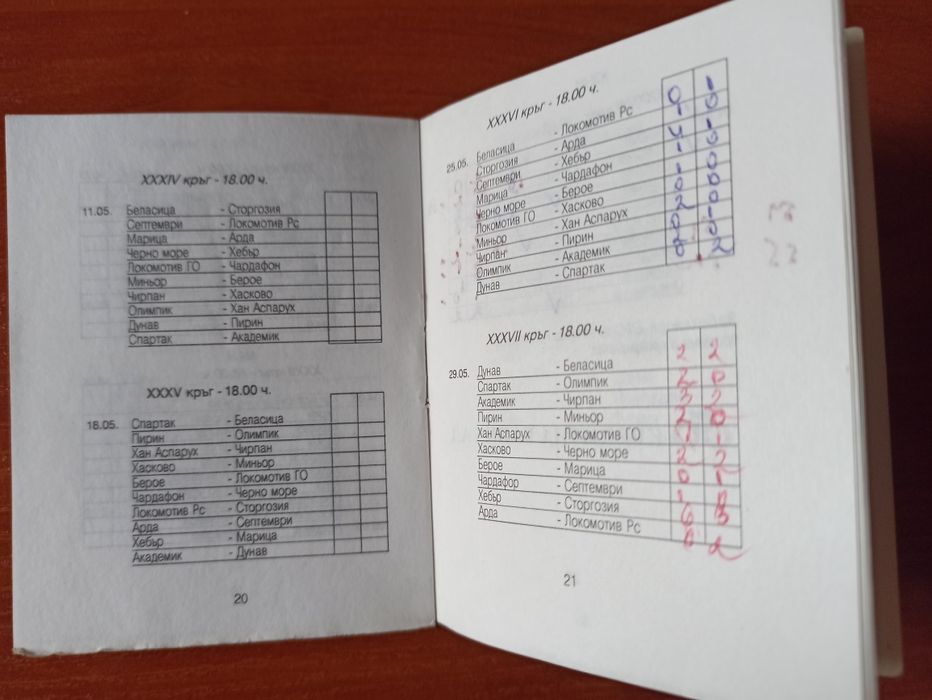 XXXIV кръг - 18.00 ч.
11.05. Беласица - Сторгозия
Септември - Локомотив Рс
Марица - Арда
Черно море - Хебър
Локомотив ГО - Чардафон
Миньор - Берое
Чирпан - Хасково
Олимпик - Хан Аспарух
Дунав - Пирин
Спартак - Академик
XXXV кръг - 18.00 ч.
18.05. Спартак - Беласица
Пирин - Олимпик
Хан Аспарух - Чирпан
Хасково - Миньор
Берое - Локомотив ГО
Чардафон - Черно море
Локомотив Рс - Сторгозия
Арда - Септември
Хебър - Марица
Академик - Дунав
20
XXXVI кръг - 18.00 ч.
25.05. Беласица - Локомотив Рс
Сторгозия - Арда
Септември - Хебър
Марица - Чардафон
Черно море - Берое
Локомотив ГО - Хасково
Миньор - Хан Аспарух
Чирпан - Пирин
Олимпик - Академик
Дунав - Спартак
XXXVII кръг - 18.00 ч.
29.05. Дунав - Беласица 2 2
Спартак - Олимпик 2 0
Академик - Чирпан 3 2
Пирин - Миньор 2 0
Хан Аспарух - Локомотив ГО
Хасково - Черно море 2 2
Берое - Марица 0 1
Чардафор - Септември
Хебър - Сторгозия
Арда - Локомотив Рс
21